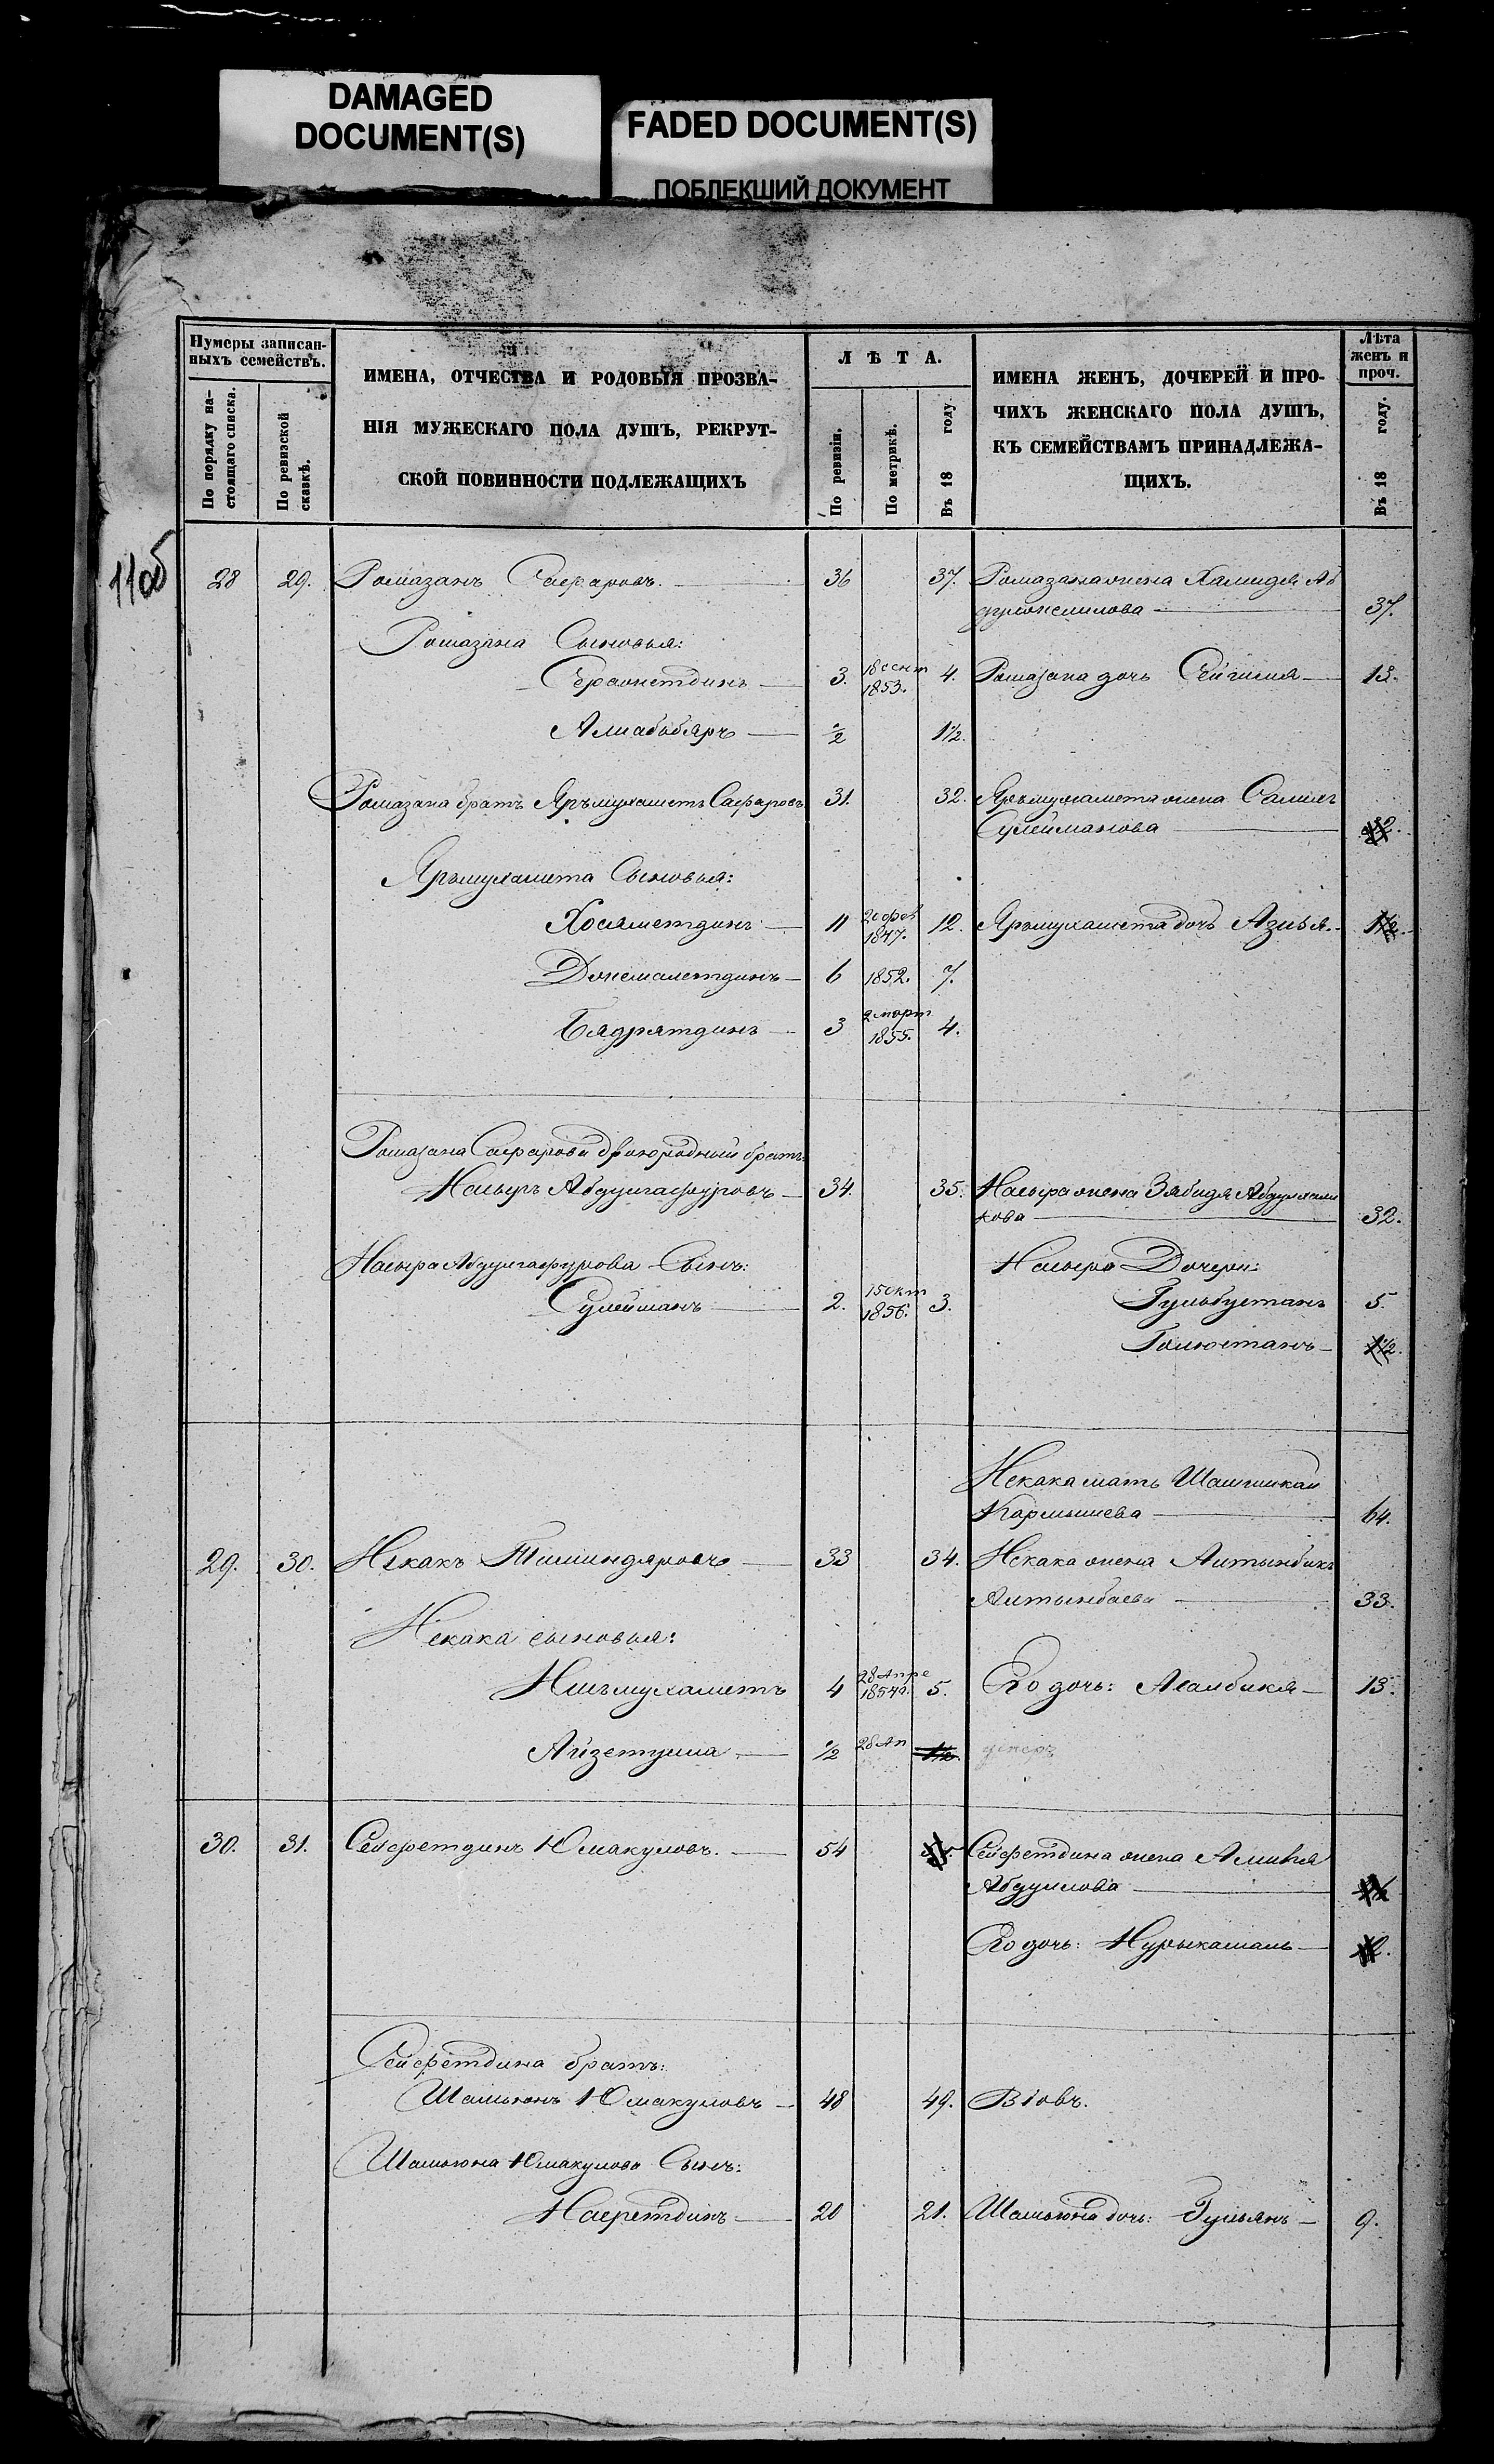 DAMAGED
DOCUMENT(S)
FADED DOCUMENT(S)
ПОБЛЕКШИЙ ДОКУМЕНТ
Нумеры записан-
ныхъ семействъ.
По порядку на-
стоящаго списка.
По ревизской
сказкѣ.
ИМЕНА, ОТЧЕСТВА И РОДОВЫЯ ПРОЗВА-
НІЯ МУЖЕСКАГО ПОЛА ДУШЪ, РЕКРУТ-
СКОЙ ПОВИННОСТИ ПОДЛЕЖАЩИХЪ
ЛѢТА.
По ревизіи.
По метрикѣ.
Въ 18 году.
ИМЕНА ЖЕНЪ, ДОЧЕРЕЙ И ПРО-
ЧИХЪ ЖЕНСКАГО ПОЛА ДУШЪ,
КЪ СЕМЕЙСТВАМЪ ПРИНАДЛЕЖА-
ЩИХЪ.
Лѣта
женъ и
проч.
Въ 18 году.
11об
28 29. Ромазанъ Сафаровъ. 36 37. Ромазана жена Хамидя Аб
дулжелилова 37.
Ромазана Сыновья:
3. 1853. 4. Ромазана дочь 13.
½ 1½.
Ромазана братъ Яръмухаметъ Сафаровъ 31. 32. Яръмухамета жена
Сулейманова
Яръмухамета Сыновья:
11 1847. 12. Яръмухамета дочь Азиья
Джемалетдинъ 6 1852. 7.
Бядрятдинъ 3 2 март 1855. 4.
Ромазана Сафарова двоюродный братъ:
Насыръ Абдулгафуровъ 34. 35. Насыра жена Зябидя
кова 32.
Насыра Абдулгафурова Сынъ: Насыра Дочери:
Сулейманъ 2. 15 окт 1856. 3. Гульбустанъ 5.
Голюстанъ 1½.
Некака мать
Кармышева 64.
29. 30. Некакъ 33 34. Некака жена Алтынбика
Алтынбаева 33.
Некака сыновья:
Ишъмухаметъ 4 28 Апре 1854 5. Его дочь: 13.
½ 28 Ап 1½. умеръ
30. 31. Сейфетдинъ Юмакуловъ. 54 Сейфетдина жена
Абдулова
Его дочь: Нурыкамаль
Сейфетдина братъ:
Шамьюнъ Юмакуловъ 48 49. Вдовъ.
Шамьюна Юмакулова Сынъ:
Насретдинъ 20 21. Шамьюна дочь: Гульянъ 9.